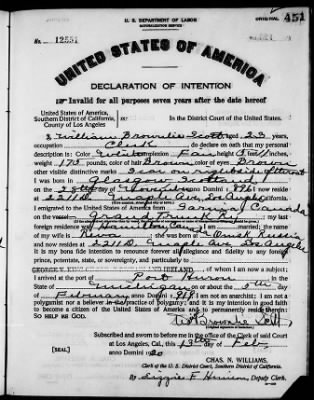 U. S. DEPARTMENT OF LABOR
NATURALIZATION SERVICE
ORIGINAL 451
No. 12551
UNITED STATES OF AMERICA
DECLARATION OF INTENTION
Invalid for all purposes seven years after the date hereof
United States of America,
Southern District of California, ss:
County of Los Angeles
In the District Court of the United States.
I, William Brownlie Scott aged 23 years,
occupation Clerk do declare on oath that my personal
description is: Color White complexion Fair height feet inches,
weight 175 pounds, color of hair Brown color of eyes Brown
other visible distinctive marks Scar on right side of throat
I was born in Glasgow Scotland
on the day of November anno Domini 1 896; I now reside
at 2211 D. Ave, Los Angeles, Calif.
I emigrated to the United States of America from Sarnia Canada
on the vessel Grand Trunk Ry; my last
foreign residence was Hamilton Can; I am married; the name
of my wife is; she was born at Omsk Russia
and now resides at 2211 D. Ave, Los Angeles
It is my bona fide intention to renounce forever all allegiance and fidelity to any foreign
prince, potentate, state, or sovereignty, and particularly to
GEORGE V, KING OF AND IRELAND of whom I am now a subject;
I arrived at the port of Port Huron in the
State of Michigan on or about the day
of February anno Domini 1 919; I am not an anarchist; I am not a
polygamist nor a believer in the practice of polygamy; and it is my intention in good faith
to become a citizen of the United States of America and to permanently reside therein:
SO HELP ME GOD.
Wm Brownlie Scott
(Original signature of declarant)
Subscribed and sworn to before me in the office of the Clerk of said Court
at Los Angeles, Cal., this 13th day of Feb
[SEAL]
anno Domini 1920
CHAS. N. WILLIAMS,
Clerk of the U. S. District Court, Southern District of California.
By Lizzie F. Deputy Clerk.